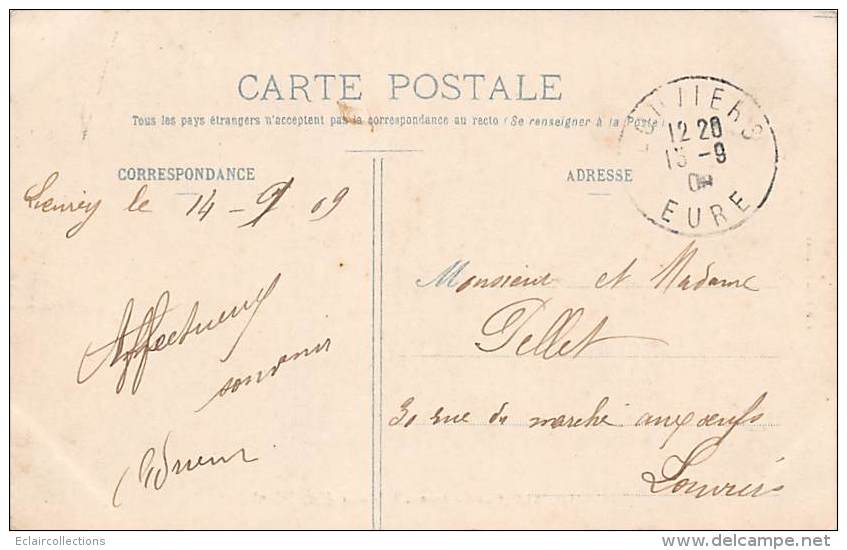 CARTE POSTALE
Tous les pays étrangers n'acceptent pas la correspondance au recto (Se renseigner à la Poste)
CORRESPONDANCE
ADRESSE
12 20
15 -9
EURE
Lieurey le 14 - 9 09
Affectueux
souvenir
Monsieur et Madame
Pellet
30 rue du marché aux oeufs
Louviers
Eclaircollections
www.delcampe.net